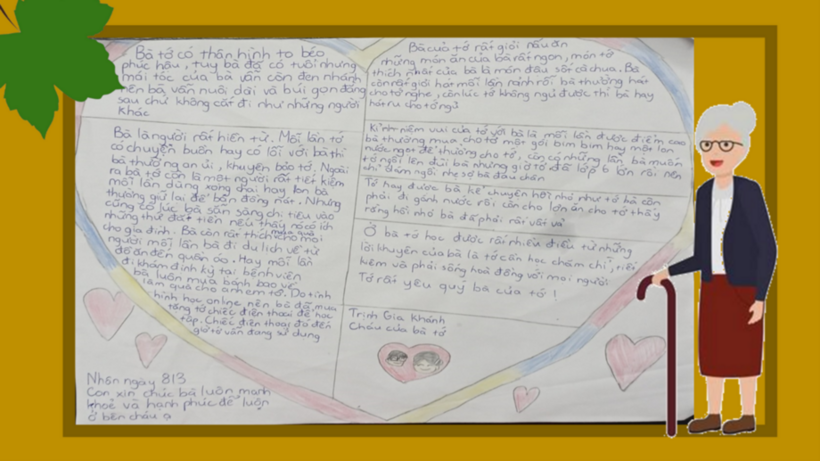 Bà tớ có thân hình to béo
phúc hậu, tuy bà đã có tuổi nhưng
mái tóc của bà vẫn còn đen nhánh
nên bà vẫn nuôi dài và búi gọn đằng
sau chứ không cắt đi như những người
khác
Bà là người rất hiền từ. Mỗi lần tớ
có chuyện buồn hay có lỗi với bà thì
bà thường an ủi, khuyên bảo tớ. Ngoài
ra bà tớ còn là một người rất tiết kiệm
mỗi lần dùng xong chai hay lon bà
thường giữ lại để bán đồng nát. Nhưng
cũng có lúc bà sẵn sàng chi tiêu vào
những thứ đắt tiền nếu thấy nó có ích
cho gia đình. Bà còn rất thích mua quà cho mọi
người mỗi lần bà đi du lịch về từ
đồ ăn đến quần áo. Hay mỗi lần
đi khám định kỳ tại bệnh viện
bà luôn mua bánh bao về
làm quà cho anh em tớ. Do tình
hình học online nên bà đã mua
tặng tớ chiếc điện thoại để học
tập. Chiếc điện thoại đó đến
giờ tớ vẫn đang sử dụng
Nhân ngày 8/3
Con xin chúc bà luôn mạnh
khoẻ và hạnh phúc để luôn
ở bên cháu ạ
Bà của tớ rất giỏi nấu ăn
những món ăn của bà rất ngon, món tớ
thích nhất của bà là món đậu sốt cà chua. Bà
còn rất giỏi hát mỗi lần rảnh rỗi bà thường hát
cho tớ nghe, còn lúc tớ không ngủ được thì bà hay
hát ru cho tớ ngủ
Kỉ niệm vui của tớ với bà là mỗi lần được điểm cao
bà thường mua cho tớ một gói bim bim hay một lon
nước ngọt để thưởng cho tớ, còn có những lần bà muốn
tớ ngồi lên đùi bà nhưng giờ tớ đã lớp 6 lớn rồi nên
chỉ dám ngồi nhẹ sợ bà đau chân
Tớ hay được bà kể chuyện hồi nhỏ như tớ bà còn
phải đi gánh nước rồi còn cho lợn ăn cho tớ thấy
rằng hồi nhỏ bà đã phải rất vất vả
Ở bà tớ học được rất nhiều điều từ những
lời khuyên của bà là tớ cần học chăm chỉ, tiết
kiệm và phải sống hoà đồng với mọi người
Tớ rất yêu quý bà của tớ !
Trịnh Gia Khánh
Cháu của bà tớ